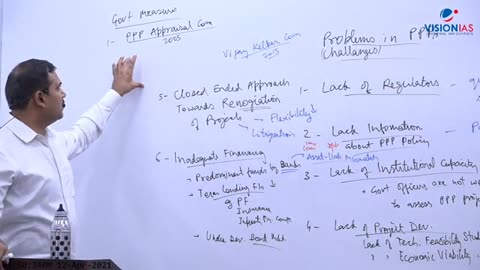 Govt Measure
1- PPP Appraisal Com
2055
Vijay Kelkar Com
2015
VISIONIAS
Problems in PPP
(Challanges)
5- Closed Ended Approach
Towards Renogiation
of Projects
Flexibility↓
Litigation
6- Inadequate Financing
• Predominent funded by Banks
Asset-Liab Mismatch
• Term Lending FIs ↓
eg PF
Insurance
• Under Dev. Bond Mkt
1- Lack of Regulators -
2 - Lack Information
about PPP Policy
3- Lack of Institutional Capacity
• Govt officers are not we
to assess PPP proj
4- Lack of Project Dev.
Lack of Tech. Feasibility Stud
" " Economic Viability
12-Apr-2021